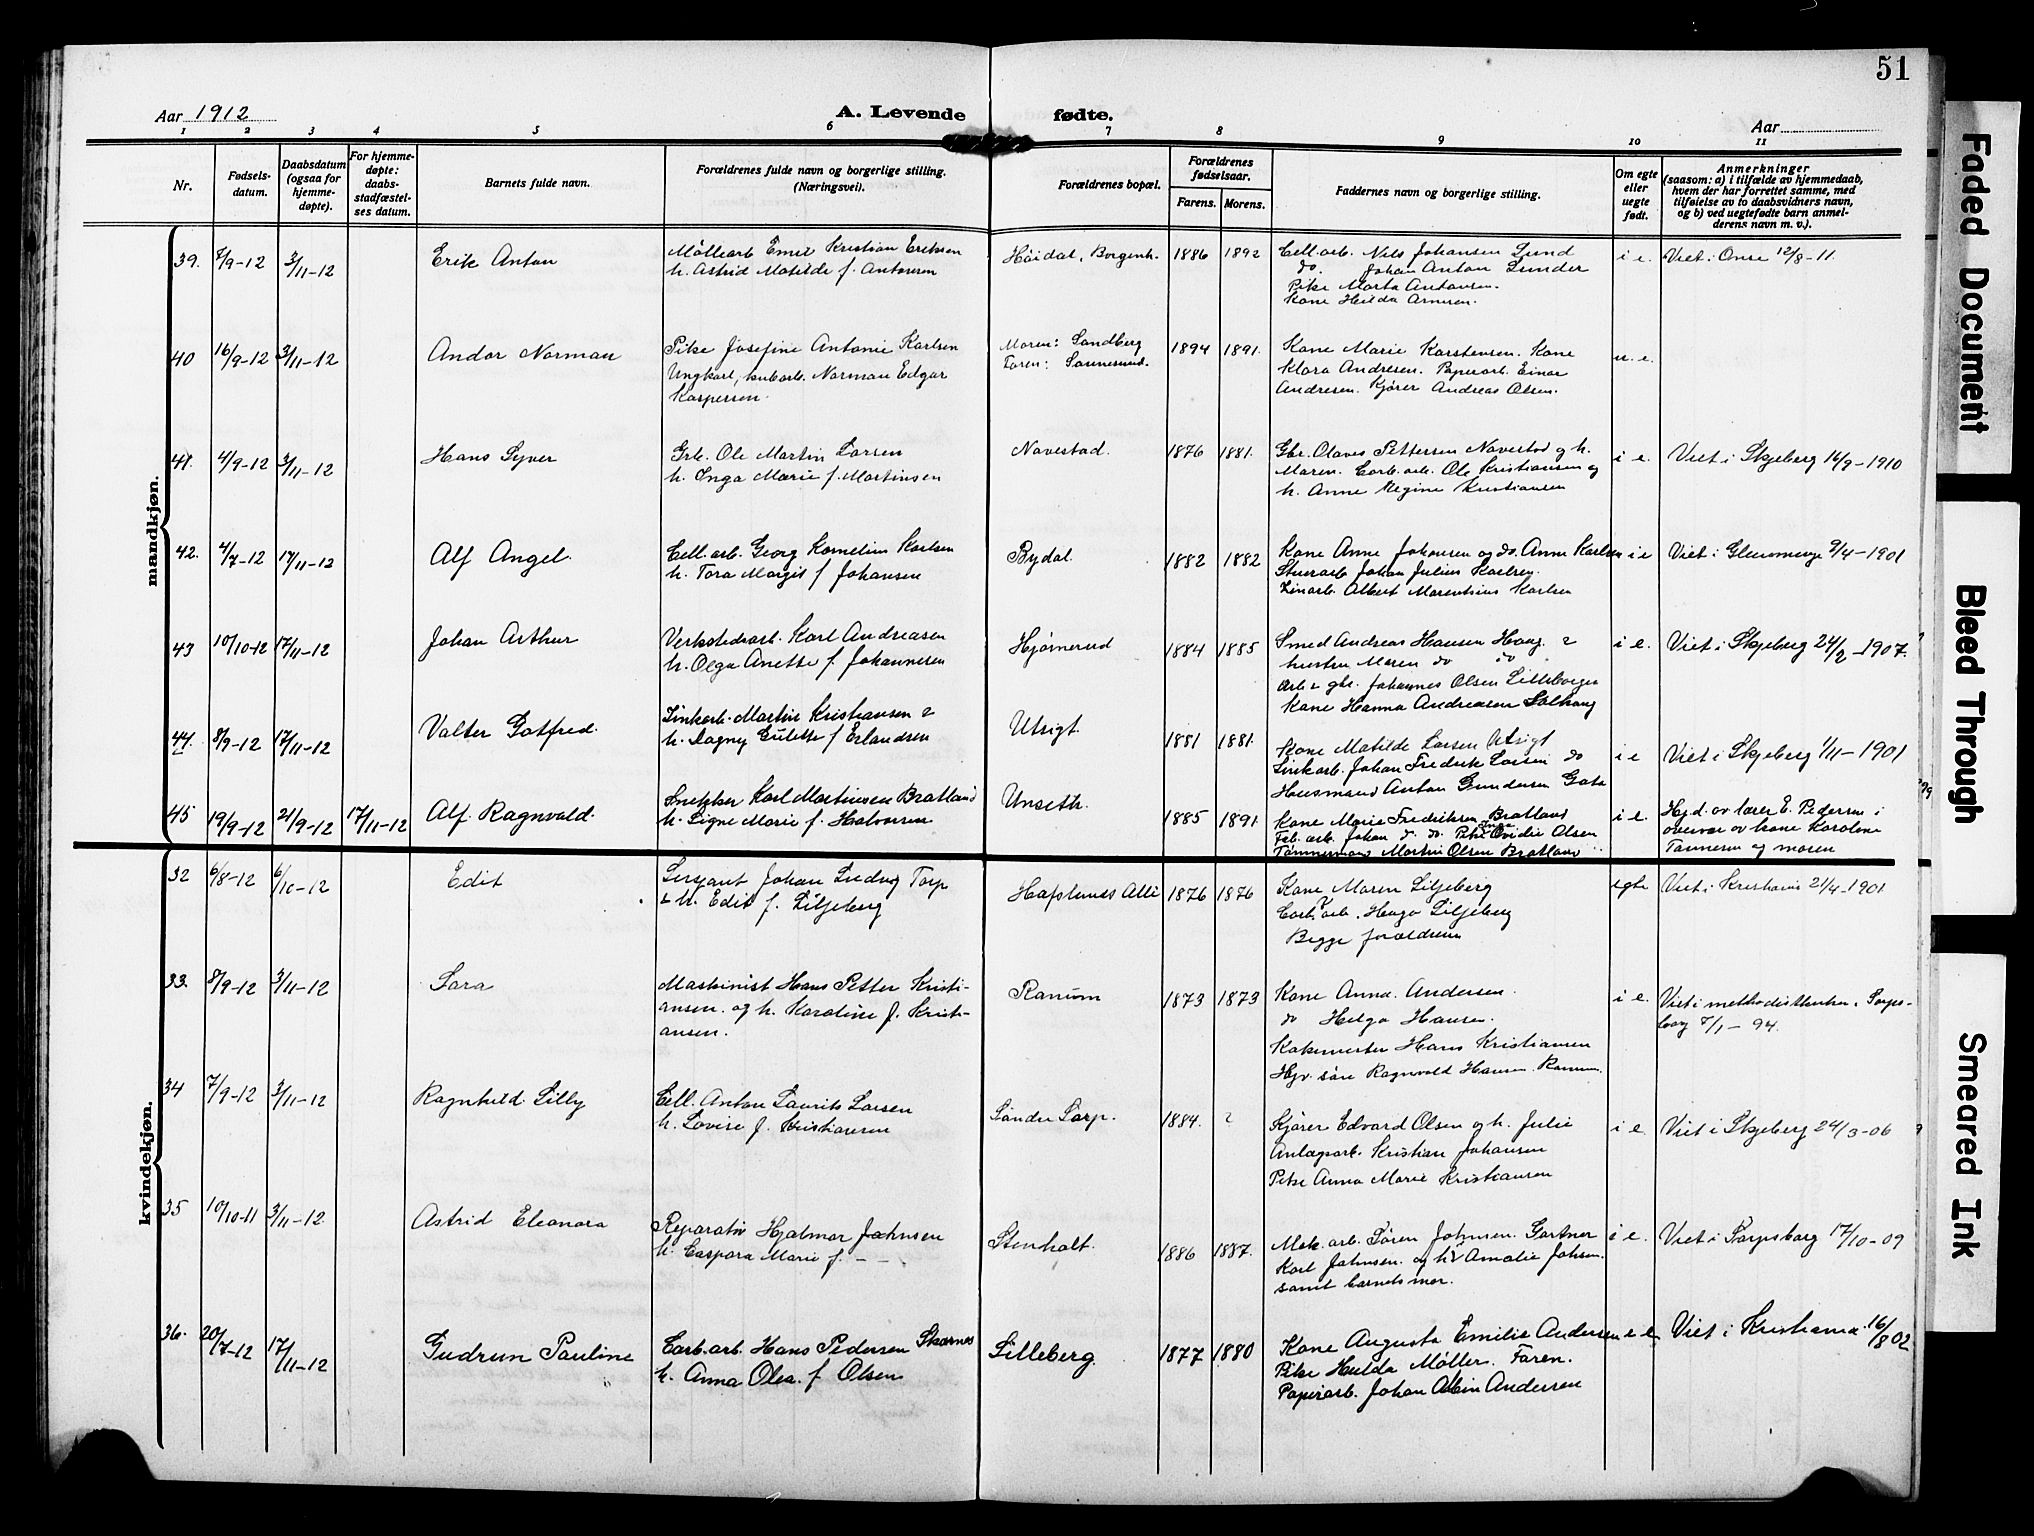 51
Aar 1912 A. Levende fødte. Aar
1 2 3 4 5 6 7 8 9 10 11
Nr. Fødsels-datum. Daabsdatum (ogsaa for hjemme-døpte). For hjemme-døpte: daabs-stadfæstel-ses datum. Barnets fulde navn. Forældrenes fulde navn og borgerlige stilling. (Næringsvei). Forældrenes bopæl. Forældrenes fødselsaar. Farens. Morens. Faddernes navn og borgerlige stilling. Om egte eller uegte født. Anmerkninger (saasom: a) i tilfælde av hjemmedaab, hvem der har forrettet samme, med tilføielse av to daabsvidners navn, og b) ved uegtefødte barn anmel-derens navn m. v.).
mandkjøn.
39. 7/9-12 3/11-12 Erik Anton Møllearb Emil Kristian Eriksen Høidal, Borgenh. 1886 1892 Cell.arb. Nils Johansen Lund i e. Viet i Onsø 12/8-11.
h. Astrid Matilde f. Antonsen do. Johan Anton Lunder
Pike Marta Antonsen.
Kone Hilda Arnesen.
40 16/9-12 3/11-12 Andor Norman Pike Josefine Antonie Karlsen Moren: Sandberg 1894 1891. Kone Marie Karstensen. Kone u. e.
Ungkarl, Norman Edgar Faren: Sannesund. Klara Andresen. Papirarb. Einar
Kaspersen. Andresen. Kjører Andreas Olsen.
41. 4/9-12 3/11-12 Hans Syver Grb. Ole Martin Larsen Navestad. 1876 1881. Gbr. Olaves Pettersen Navestad og h. i e. Viet i Skjeberg 16/9-1910
h. Inga Marie f. Martinsen Maren. Carb.arb. Ole Kristiansen og
h. Anne Regine Kristiansen
42. 4/7-12 17/11-12 Alf Angel. Cell.arb. Georg Kornelius Karlsen Bydal. 1882 1882 Kone Anne Johansen og do. Anna Karlsen i e Viet i Glemminge 9/4-1901
h. Tora Margit f Johansen Johan Julius Karlsen.
Albert Karlsen
43 10/10-12 17/11-12 Johan Arthur Verkstedsarb. Karl Andreasen Hjørnerud 1884 1885 Smed Andreas Hansen Haug. & i e. Viet i Skjeberg 24/2-1907.
h. Olga Anette f. Johannesen hustru Maren do do
Arb & gbr. Johannes Olsen Lilleborger
Kone Hanna Andreasen Solhaug
44. 8/9-12 17/11-12 Valter Gotfred. Zinkarb. Martin Kristiansen & Utsigt. 1881 1881. Kone Matilde Larsen Utsigt i e Viet i Skjeberg 1/11-1901
h. Dagny f Erlandsen Zinkarb. Johan Fredrik Larsen do
Husmand Anton Gundersen Gata
45 19/9-12 21/9-12 17/11-12 Alf Ragnvald. Snekker Karl Martinsen Bratland Unseth. 1885 1891. Kone Marie Fredriksen Bratland i e. Hjd. av lærer E. Pedersen i
h. Signe Marie f. Halvorsen Fab.arb. Johan do. do. Pike Inga Ovidie Olsen overvær av kone Karoline
Tømmermand Martin Olsen Bratland og moren
kvindekjøn.
32 6/8-12 6/10-12 Edit Sersjant Johan Ludvig Torp Hafslunds Allé 1876 1876 Kone Maren Liljeberg egte Viet i Kristiania 21/4-1901.
& h. Edit f. Liljeberg Carb. arb. Hugo Liljeberg
Begge forældrene
33. 8/9-12 3/11-12 Sara Maskinist Hans Petter Kristi- Ranum 1873 1873 Kone Anna. Andersen. i e. Viet i methodistkirken i Sarps-
ansen. og h. Karoline f. Kristi- do Helga Hansen. borg 7/1-94.
ansen. Hans Kristiansen
Ragnvald Hansen Ranum.
34 7/9-12 3/11-12 Ragnhild Lilly Cell. Anton Laurits Larsen Søndre Sarp. 1884. ? Kjører Edvard Olsen og h. Julie i e. Viet i Skjeberg 24/3-06
h. Lovise f. Kristiansen Anlægsarb. Kristian Johansen
Pike Anna Marie Kristiansen
35 10/10-11 3/11-12. Astrid Eleonora Reparatør Hjalmar Johnsen Stenholt. 1886 1887. Mek.arb. Søren Johnsen. Gartner i e. Viet i Sarpsborg 17/10-09
h. Caspara Marie f. - - Karl Johnsen. og h. Amalie Johsen.
samt barnets mor.
36. 20/7-12 17/11-12 Gudrun Pauline Carb.arb. Hans Pedersen Skarnes Lilleberg. 1877 1880 Kone Augusta Emilie Andersen e e Viet i Kristiania 16/8 02
h. Anna Olea. f Olsen Pike Hulda Møller. Faren.
Papirarb. Johan Albin Andersen
Faded Document
Bleed Through
Smeared Ink